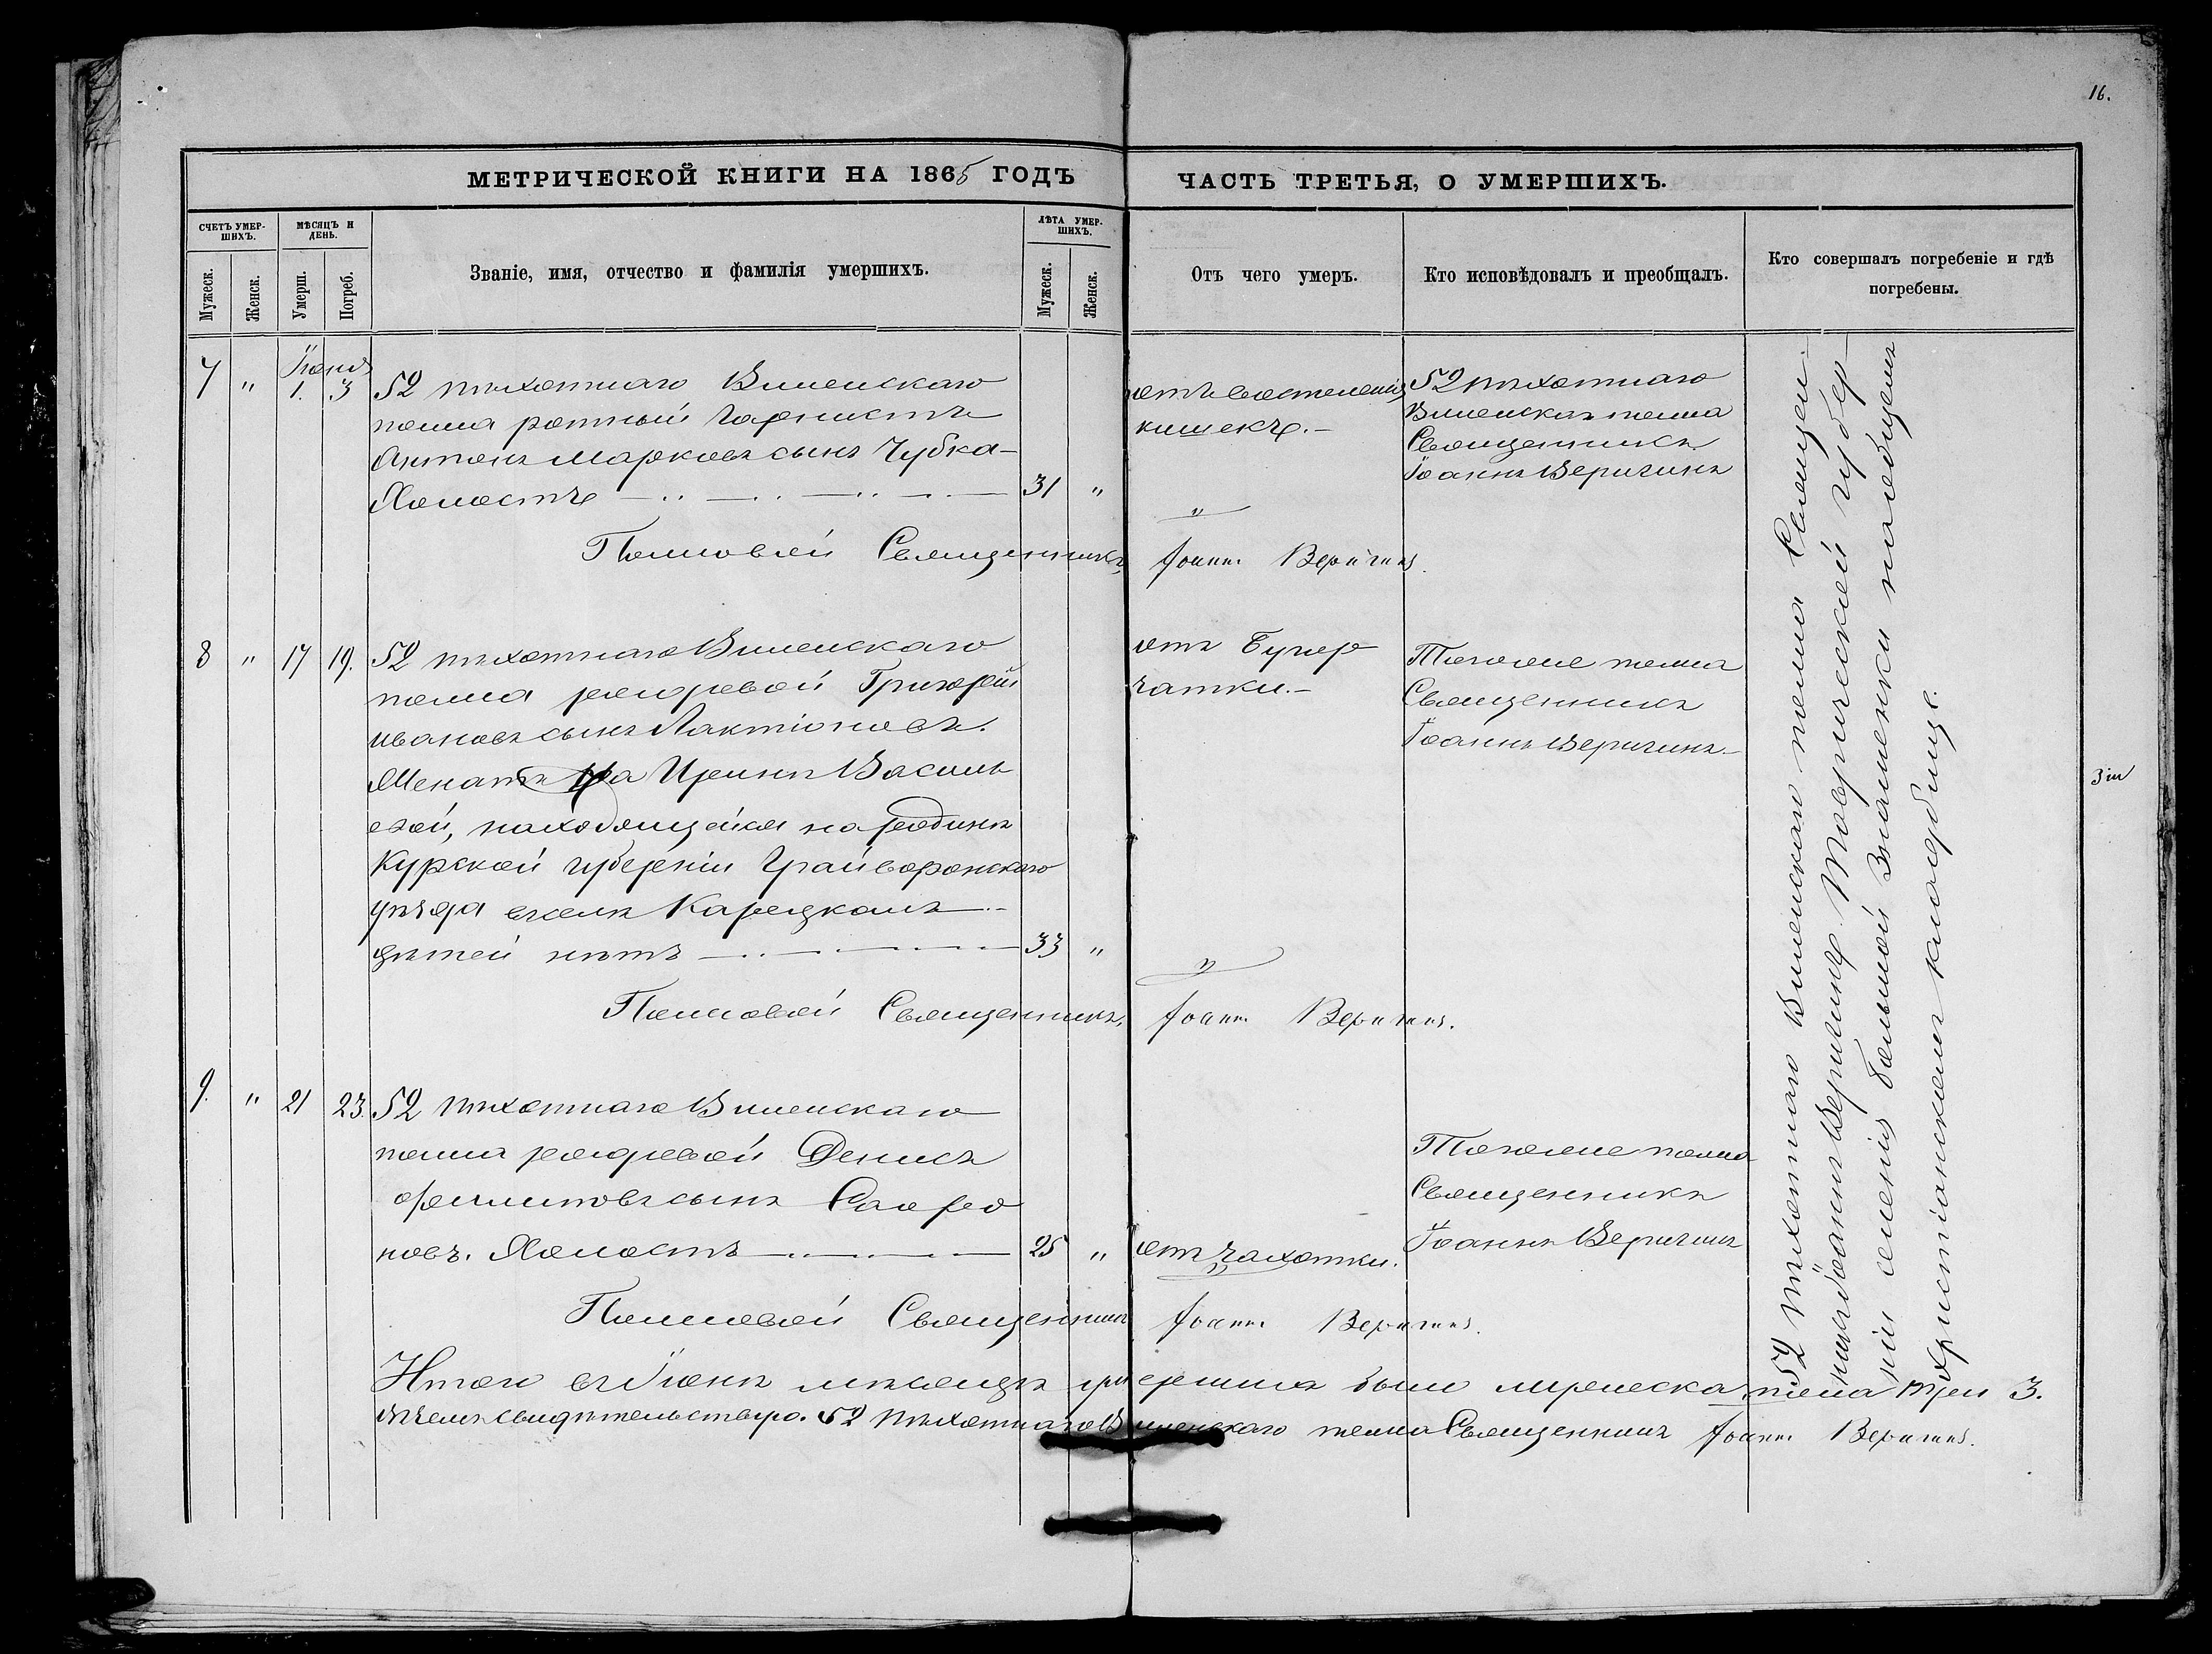 16.
МЕТРИЧЕСКОЙ КНИГИ НА 1865 ГОДЪ
ЧАСТЬ ТРЕТЬЯ, О УМЕРШИХЪ.
СЧЕТЪ УМЕР-
ШИХЪ.
МѢСЯЦЪ И
ДЕНЬ.
Званіе, имя, отчество и фамилія умершихъ.
ЛѢТА УМЕР-
ШИХЪ.
Мужеск.
Женск.
Умерш.
Погреб.
Мужеск.
Женск.
Отъ чего умеръ.
Кто исповѣдовалъ и преобщалъ.
Кто совершалъ погребеніе и гдѣ
погребены.
Іюнь
7 " 1. 3 52 пѣхотнаго Виленскаго
полка ротный горнистъ
Антонъ Марковъ сынъ Чубка-
Холостъ 31 "
отъ воспаленія
кишекъ.
52 пѣхотнаго
Виленскаго полка
Священникъ
Іоаннъ Веригинъ
Полковой Священникъ Іоаннъ Веригинъ.
8 " 17 19. 52 пѣхотнаго Виленскаго
полка рядовой Григорій
Ивановъ сынъ Лактіоновъ.
Женатъ на Иринѣ Василь
евой, находящейся на родинѣ
Курской губерніи Грайворонскаго
уѣзда въ селѣ
дѣтей нѣтъ 33 "
отъ Бугор
чатки.
Тогоже полка
Священникъ
Іоаннъ Веригинъ
Полковой Священникъ Іоаннъ Веригинъ.
3ш
9. " 21 23. 52 пѣхотнаго Виленскаго
полка рядовой Денисъ
Филиповъ сынъ Сафро
новъ. Холостъ 25 "
отъ чахотки.
Тогоже полка
Священникъ
Іоаннъ Веригинъ
Полковой Священникъ Іоаннъ Веригинъ.
52 пѣхотнаго Виленскаго полка Священ-
никъ Іоаннъ Веригинъ Таврической губер
ніи селенія большой Знаменки на общемъ
христіанскомъ кладбищѣ.
Итого въ Іюнѣ мѣсяцѣ умершихъ было мужеска пола три 3.
въ чемъ свидѣтельствую. 52 пѣхотнаго Виленскаго полка Священникъ Іоаннъ Веригинъ.